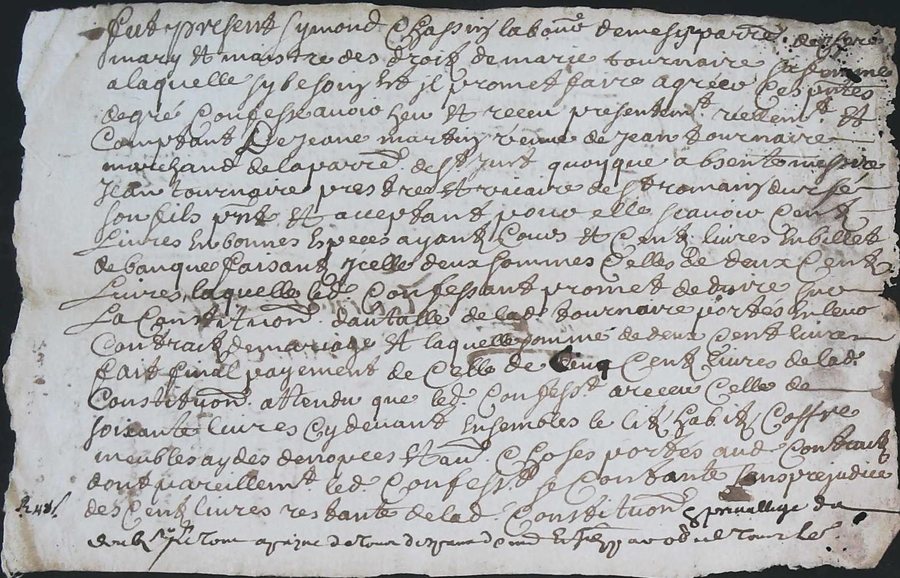 fut present symond Chassin labour demesy parre.
mary et maistre des droit de marie tournaire sa femme
a laquelle sy besoin est jl promet faire agreer ces pntes
de gré Confesse avoir heu et receu presentem.t reellem.t et
Comptant De Jeane martin veuve de jean tournaire
marchand de la parre. de st just quoyque absente messire
Jean tournaire prestre et vicaire de st romain
son fils pnt et acceptant pour elle scavoir Cent
Livres En bonnes Especes ayant Cours et Cent livres En billet
de banque faisant jcelle deux sommes Celles de deux Cent
Livres laquelle led. Confessant promet de duire sur
La Constituon. dautalle de lad. tournaire portés En leur
Contrait de mariage et laquelle somme de deux Cent livres
fait final payement de Celle de Cinq Cent livres de lad.
Constituon. attendu que led. Confesst. a receu Celle de
soixante livres Cy devant Ensembles le lit habit Coffre
meubles aydes de nopces et au. Choses portés aud. Contrait
dont pareillemt. led. Confesst. se Contante sans prejudice
des Cent livres restante de lad. Constituon. & privillige du